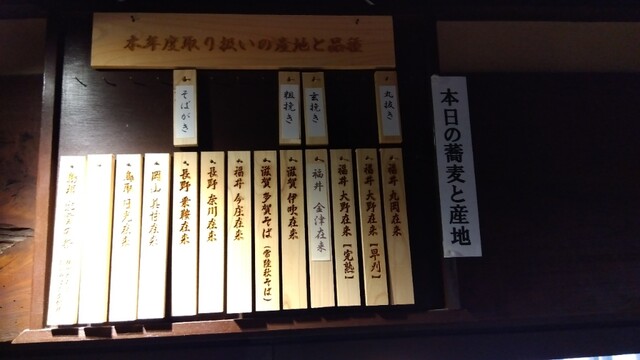 本年度取り扱いの産地と品種
丸抜き
玄挽き
粗挽き
そばがき
福井 丸岡在来
福井 大野在来【早刈】
福井 大野在来【完熟】
福井 金津在来
滋賀 伊吹在来
滋賀 多賀そば(常陸秋そば)
福井 今庄在来
長野 奈川在来
長野 乗鞍在来
岡山 美甘在来
鳥取 日光在来
本日の蕎麦と産地